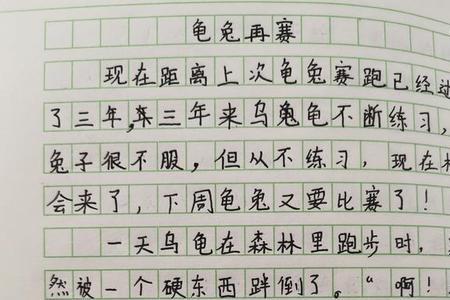 龟兔再赛
现在距离上次龟兔赛跑已经过
了三年,三年来乌龟不断练习,
兔子很不服,但从不练习,现在
会来了,下周龟兔又要比赛了!
一天乌龟在森林里跑步时,
然被一个硬东西跘倒了。“啊!